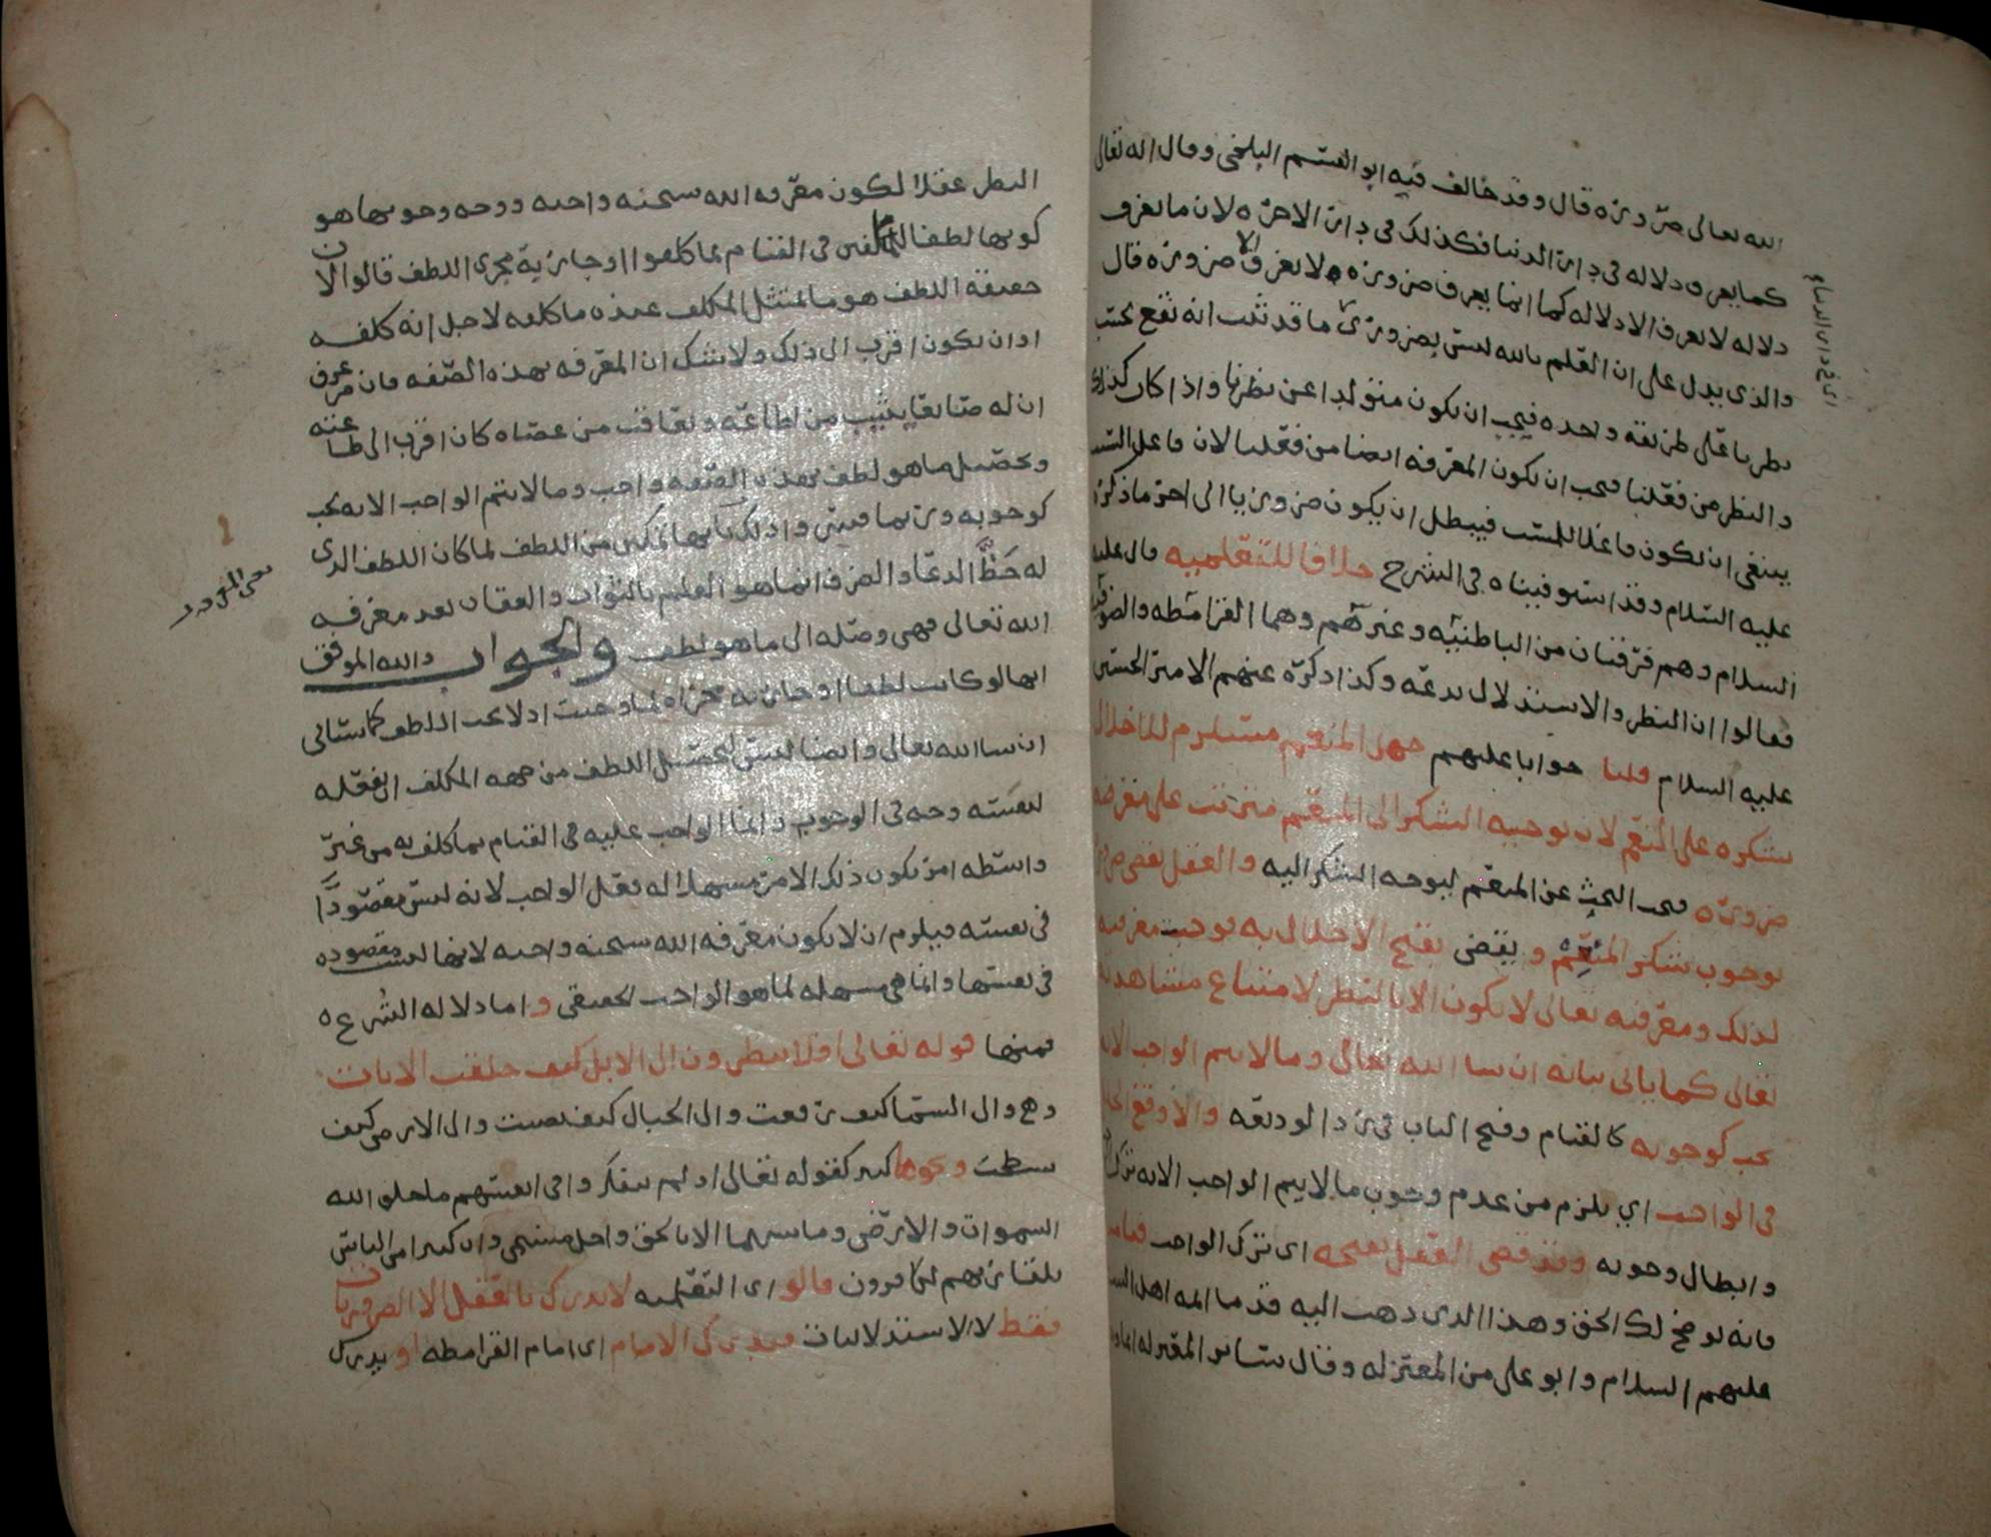 الله تعالى ضرورة قال وقد خالف فيه ابو القسم البلخي وقال انه تعالى
كما يعرف دلاله في دار الدنيا فكذلك في دار الاخره لان ما يعرف
دلاله لا يعرف الا دلاله كما ان ما يعرف ضروره لا يعرف الا ضروره قال
والذي يدل على ان العلم بالله ليس بضروري ما قد ثبت انه يقع بحسب
نظرنا على طريقه واحده فيجب ان يكون متولدا عن نظرنا واذا كان كذلك
والنظر من فعلنا فيجب ان تكون المعرفه ايضا من فعلنا لان فاعل السبب
ينبغي ان يكون فاعلا للمسبب فيبطل ان يكون ضروريا الى اخر ما ذكره
عليه السلام وقد استوفيناه في الشرح خلافا للتعليميه قال عليه
السلام وهم فرقتان من الباطنيه وغيرهم وهما القرامطه والصوفيه
فقالوا ان النظر والاستدلال بدعه وكذا ذكره عنهم الامير الحسين
عليه السلام قلنا جوابا عليهم جهل المنعم مستلزم للاخلال
بشكره على النعم لان توجيه الشكر الى المنعم مترتب على معرفته
ضروره فيجب البحث عن المنعم ليوجه الشكر اليه والعقل يقضي ضرورة
بوجوب شكر المنعم ويقضي بقبح الاخلال به فوجبت معرفته
لذلك ومعرفته تعالى لا تكون الا بالنظر لامتناع مشاهدته
تعالى كما ياتي بيانه ان شا الله تعالى وما لا يتم الواجب الا به
يجب كوجوبه كالقيام وفتح الباب في رد الوديعه والا وقع الخلل
في الواجب اي يلزم من عدم وجوب ما لا يتم الواجب الا به ترك
وابطال وجوبه وقد قضى العقل بقبحه اي ترك الواجب
فانه يوضح لك الحق وهذا الذي ذهب اليه قدما ائمه اهل البيت
عليهم السلام وابو علي من المعتزله وقال سائر المعتزله
اي في دار الدنيا
النظر عقلا لكون معرفه الله سبحنه واجبه ووجه وجوبها هو
كونها لطفا للمكلفين في القيام بما كلفوا او جاريه مجرى اللطف قالوا لان
حقيقه اللطف هو ما يمتثل المكلف عنده ما كلفه لاجل انه كلفه
او ان يكون اقرب الى ذلك ولا شك ان المعرفه بهذه الصفه فان من عرف
ان له صانعا يثيب من اطاعه ويعاقب من عصاه كان اقرب الى طاعته
وتحصيل ما هو لطف بهذه الصفه واجب وما لا يتم الواجب الا به يجب
كوجوبه وربما قيس واذ لك بانها تمكين من اللطف لما كان اللطف الذي
له حظ الدعا والصرف انما هو العلم بالثواب والعقاب بعد معرفه
الله تعالى فهي وصله الى ما هو لطف والجواب والله الموفق
انها لو كانت لطفا او جاريه مجراه لما وجبت اذ لا يجب اللطف كما سياتي
ان شا الله تعالى وايضا ليس لتحصيل اللطف من جهه المكلف ان فعله
لنفسه وجه في الوجوب وانما الواجب عليه في القيام بما كلف به من غير
واسطه امر يكون ذلك الامر مسهلا له فعل الواجب لانه ليس مقصودا
في نفسه فيلزم ان لا يكون معرفه الله سبحنه واجبه لانها ليست مقصوده
في نفسها وانما هي مسهله لما هو الواجب الحقيقي واما دلاله الشرع
فمنها قوله تعالى افلا ينظرون الى الابل كيف خلقت الايات
وهي والى السما كيف رفعت والى الجبال كيف نصبت والى الارض كيف
سطحت ونحوها كثير كقوله تعالى اولم يتفكروا في انفسهم ما خلق الله
السموات والارض وما بينهما الا بالحق واجل مسمى وان كثيرا من الناس
بلقا ربهم لكافرون قالوا اي التعليميه لا يدرك بالعقل الا الضروريات
فقط لا الاستدلاليات فيدرك الامام اي امام القرامطه او يدرك